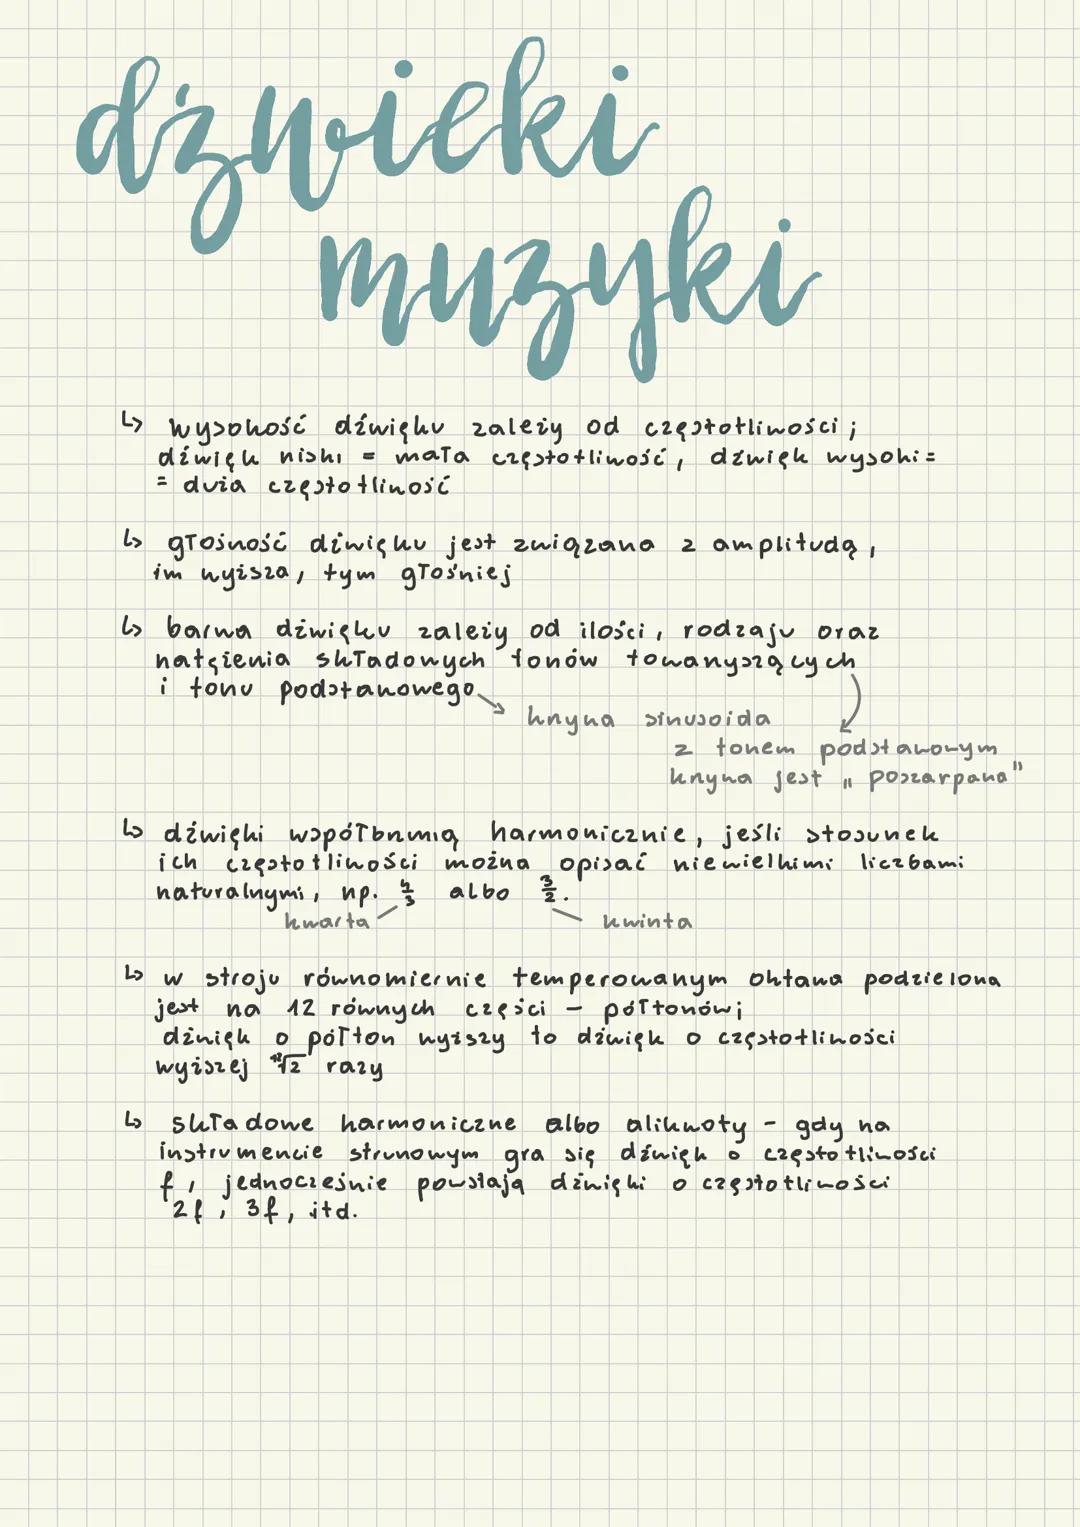 dźwięki
muzyki
↳ wysokość dźwięku zależy od częstotliwości;
dźwięk niski = mała częstotliwość, dźwięk wysoki =
= duża częstotliwość
↳ głośność dźwięku jest związana z amplitudą,
im wyższa, tym głośniej
↳ barwa dźwięku zależy od ilości, rodzaju oraz
natężenia składowych tonów towarzyszących
i tonu podstawowego
krzywa sinusoida
z tonem podstawowym
krzywa jest „poszarpana"
↳ dźwięki współbrzmią harmonicznie, jeśli stosunek
ich częstotliwości można opisać niewielkimi liczbami
naturalnymi, np. 4/3 albo 3/2.
kwarta kwinta
↳ w stroju równomiernie temperowanym oktawa podzielona
jest na 12 równych części – półtonów;
dźwięk o półton wyższy to dźwięk o częstotliwości
wyższej ¹²√2 razy
↳ składowe harmoniczne albo alikwoty - gdy na
instrumencie strunowym gra się dźwięk o częstotliwości
f, jednocześnie powstają dźwięki o częstotliwości
2f, 3f, itd.